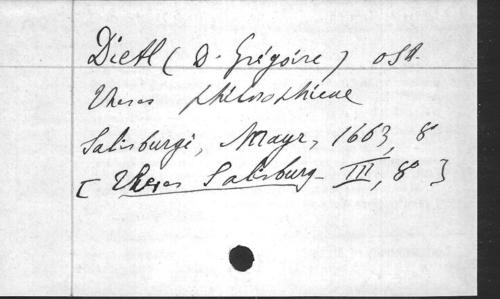 Dietl ( D. Grégoire ) OSB.
Theses philosophicae
Salisburgi, Mayr, 1663, 8°
[ Theses Salisburg. III, 8° ]